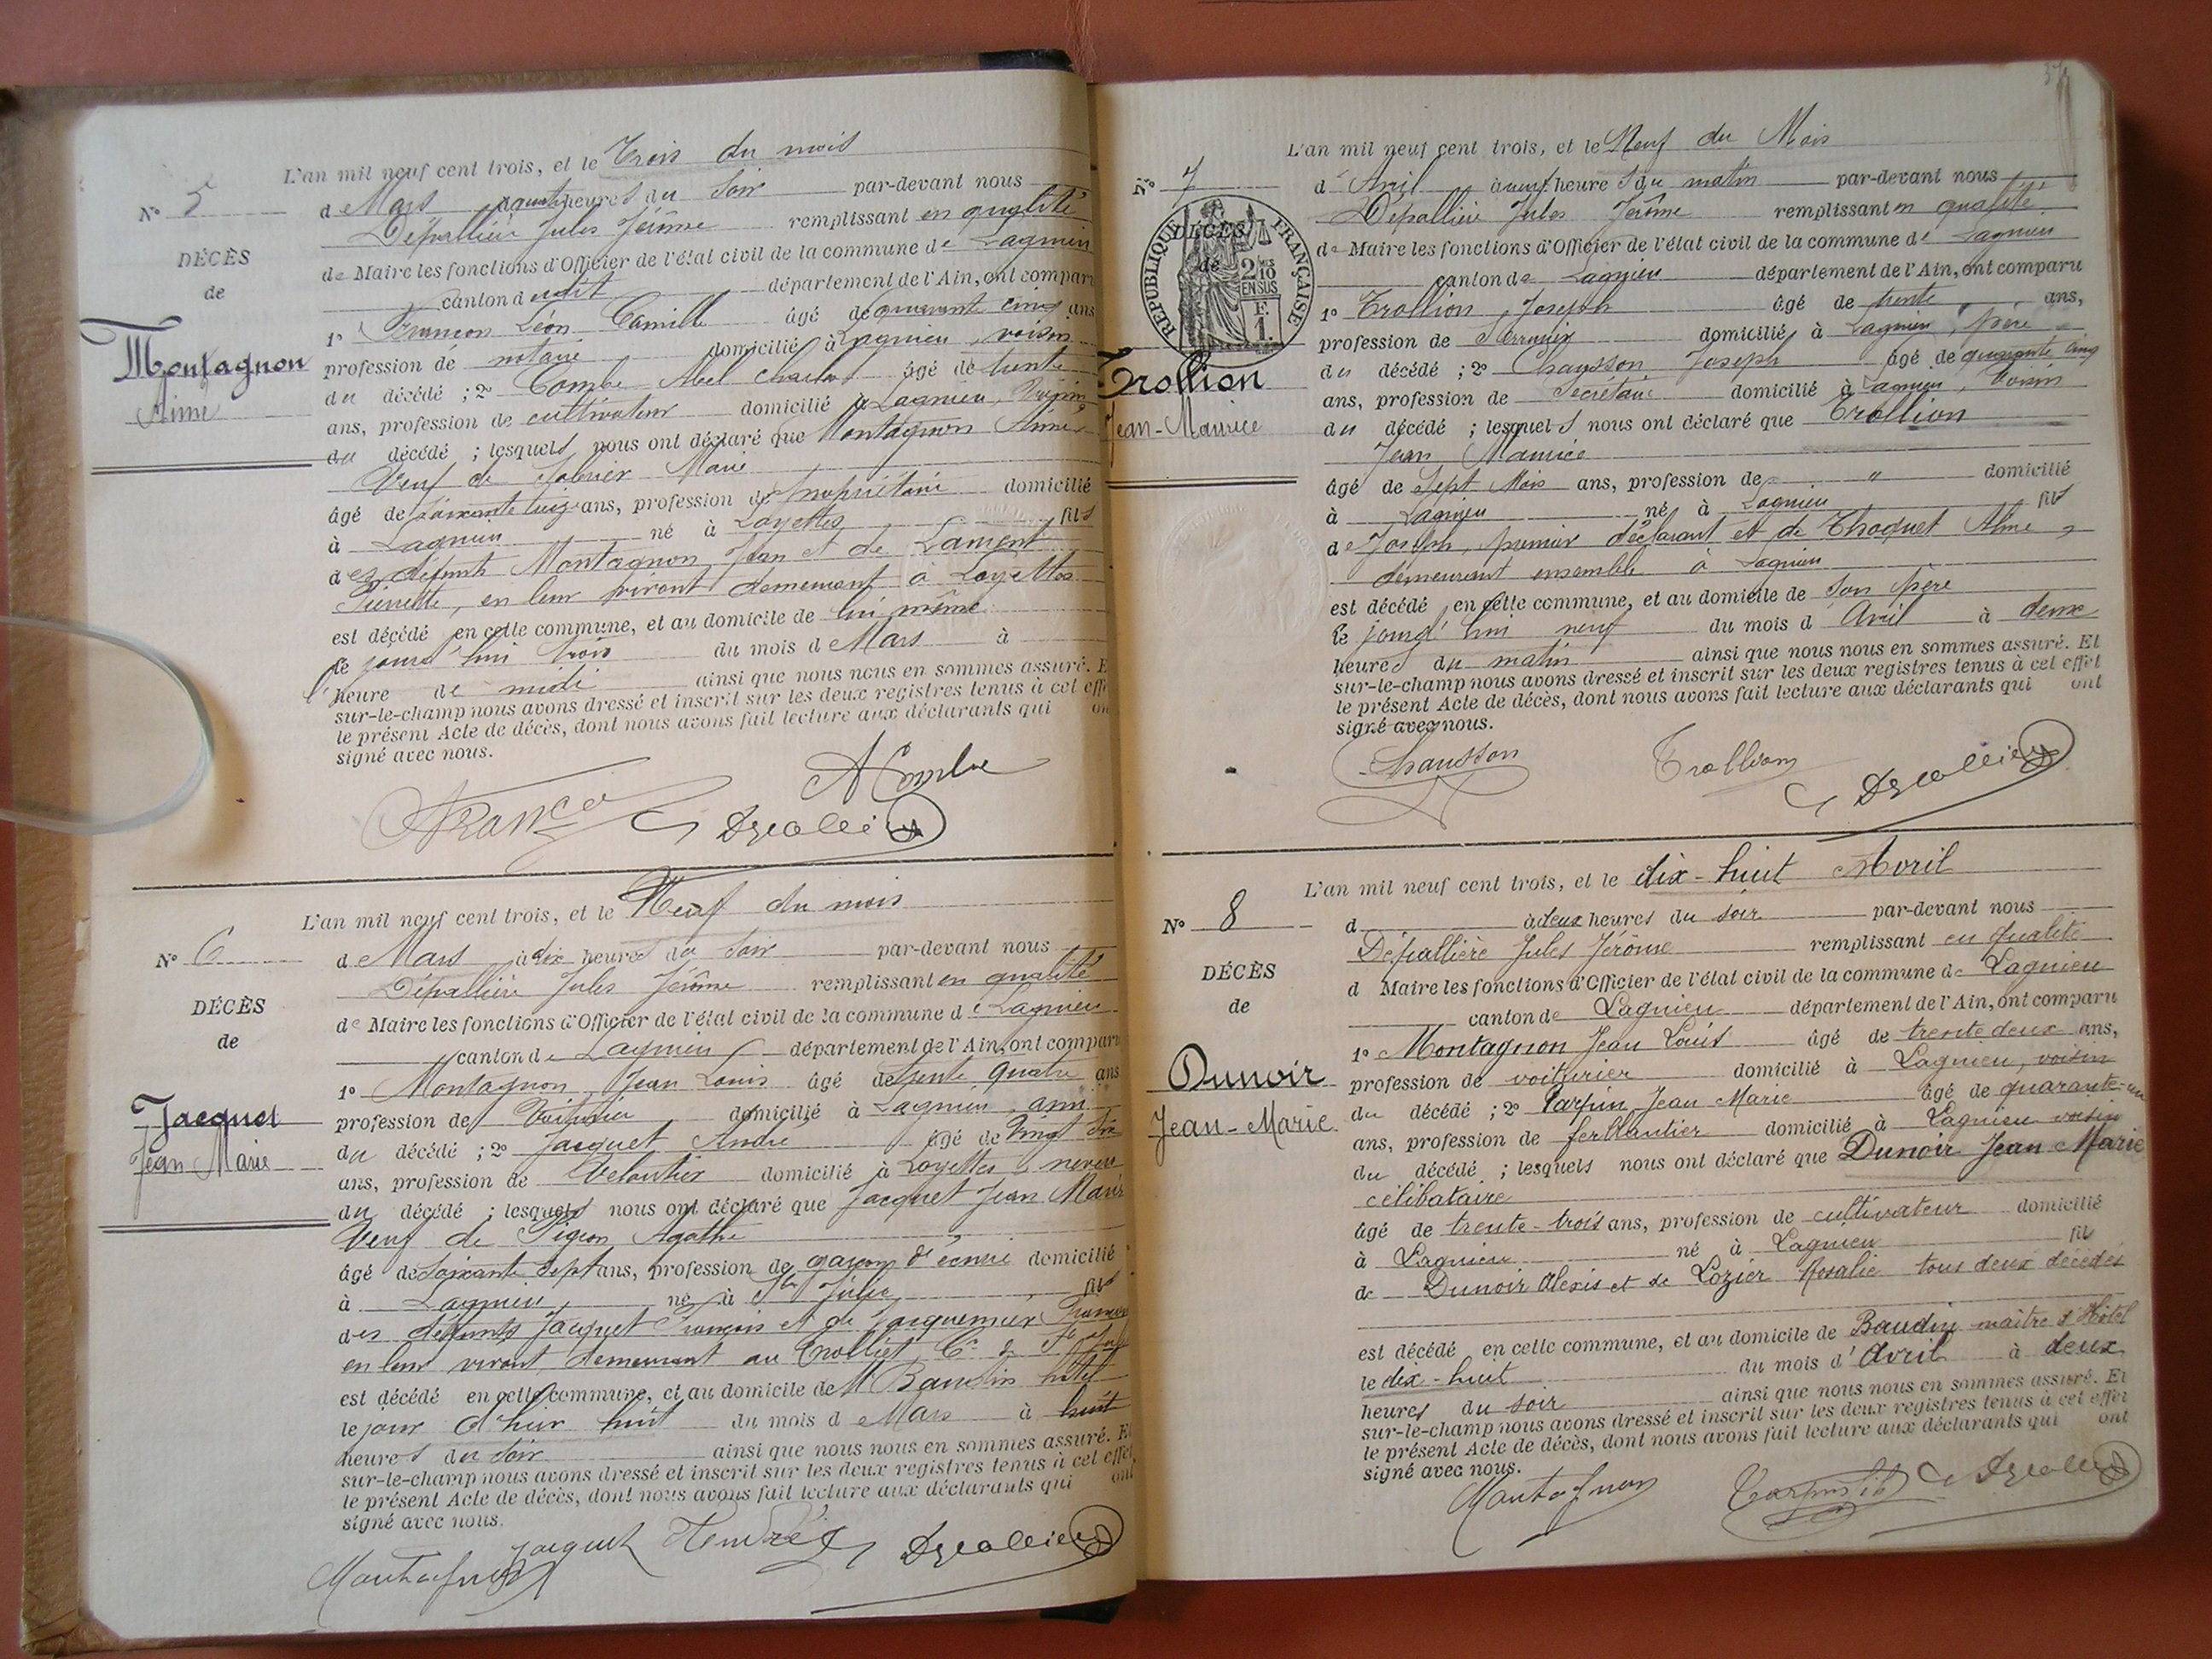 L'an mil neuf cent trois, et le Trois du mois
N° 5
de Mars à quatre heures du soir par-devant nous
Dépallière Jules Jérôme remplissant en qualité
DÉCÈS
de Maire les fonctions d'Officier de l'état civil de la commune de Lagnieu
de
canton dudit département de l'Ain, ont comparu
1° Léon Camille âgé de quarante cinq ans
Montagnon
profession de notaire domicilié à Lagnieu, voisin
Aimé
du décédé ; 2° Combe Abel Charles âgé de trente
ans, profession de cultivateur domicilié à Lagnieu, voisin
du décédé ; lesquels nous ont déclaré que Montagnon Aimé
Veuf de Marie
âgé de ans, profession de propriétaire domicilié
à Lagnieu né à Loyettes fils
des défunts Montagnon Jean et de Lament
Pierrette, en leur vivant demeurant à Loyettes
est décédé en cette commune, et au domicile de lui même
le jourd'hui trois du mois de Mars à
l'heure de midi ainsi que nous nous en sommes assuré. Et
sur-le-champ nous avons dressé et inscrit sur les deux registres tenus à cet effet
le présent Acte de décès, dont nous avons fait lecture aux déclarants qui ont
signé avec nous.
A Combe
L'an mil neuf cent trois, et le Neuf du mois
N° 6
de Mars à dix heures du soir par-devant nous
Dépallière Jules Jérôme remplissant en qualité
DÉCÈS
de Maire les fonctions d'Officier de l'état civil de la commune de Lagnieu
de
canton de Lagnieu département de l'Ain, ont comparu
1° Montagnon Jean Louis âgé de trente quatre ans
Jacquet
profession de Voiturier domicilié à Lagnieu, ami
Jean Marie
du décédé ; 2° Jacquet André âgé de vingt six
ans, profession de Veloutier domicilié à Loyettes, neveu
du décédé ; lesquels nous ont déclaré que Jacquet Jean Marie
Veuf de Pigeon Agathe
âgé de soixante sept ans, profession de garçon d'écurie domicilié
à Lagnieu né à Ste Julie fils
des défunts Jacquet François et de Jacquemier
en leur vivant demeurant au Trolliet Cne de Ste Julie
est décédé en cette commune, et au domicile de M Baudin hôtel
le jour d'hier huit du mois de Mars à huit
heures du soir ainsi que nous nous en sommes assuré. Et
sur-le-champ nous avons dressé et inscrit sur les deux registres tenus à cet effet,
le présent Acte de décès, dont nous avons fait lecture aux déclarants qui ont
signé avec nous.
Montagnon Jacquet
L'an mil neuf cent trois, et le Neuf du Mois
N° 7
d'Avril à neuf heures du matin par-devant nous
Dépallière Jules Jérôme remplissant en qualité
RÉPUBLIQUE FRANÇAISE
DÉCÈS
de
2/10 EN SUS
F. 1.
de Maire les fonctions d'Officier de l'état civil de la commune de Lagnieu
canton de Lagnieu département de l'Ain, ont comparu
1° Trollion Joseph âgé de trente ans,
profession de Serrurier domicilié à Lagnieu, père
Trollion
du décédé ; 2° Chausson Joseph âgé de quarante cinq
Jean-Maurice
ans, profession de Secrétaire domicilié à Lagnieu, voisin
du décédé ; lesquels nous ont déclaré que Trollion
Jean Maurice
âgé de Sept Mois ans, profession de " domicilié
à Lagnieu né à Lagnieu fils
de Joseph, premier déclarant et de Thoquet
demeurant ensemble à Lagnieu
est décédé en cette commune, et au domicile de son père
le jourd'hui neuf du mois d'Avril à deux
heures du matin ainsi que nous nous en sommes assuré. Et
sur-le-champ nous avons dressé et inscrit sur les deux registres tenus à cet effet
le présent Acte de décès, dont nous avons fait lecture aux déclarants qui ont
signé avec nous.
Chausson Trollion
L'an mil neuf cent trois, et le dix-huit Avril
N° 8
d à deux heures du soir par-devant nous
Dépallière Jules Jérôme remplissant en qualité
DÉCÈS
d Maire les fonctions d'Officier de l'état civil de la commune de Lagnieu
de
canton de Lagnieu département de l'Ain, ont comparu
1° Montagnon Jean Louis âgé de trente deux ans,
Dunoir
profession de voiturier domicilié à Lagnieu, voisin
Jean-Marie
du décédé ; 2° Jean Marie âgé de quarante-un
ans, profession de ferblantier domicilié à Lagnieu voisin
du décédé ; lesquels nous ont déclaré que Dunoir Jean Marie
célibataire
âgé de trente-trois ans, profession de cultivateur domicilié
à Lagnieu né à Lagnieu fils
de Dunoir Alexis et de Lozier Rosalie tous deux décédés
est décédé en cette commune, et au domicile de Baudin maître d'Hôtel
le dix-huit du mois d'Avril à deux
heures du soir ainsi que nous nous en sommes assuré. Et
sur-le-champ nous avons dressé et inscrit sur les deux registres tenus à cet effet
le présent Acte de décès, dont nous avons fait lecture aux déclarants qui ont
signé avec nous.
Montagnon